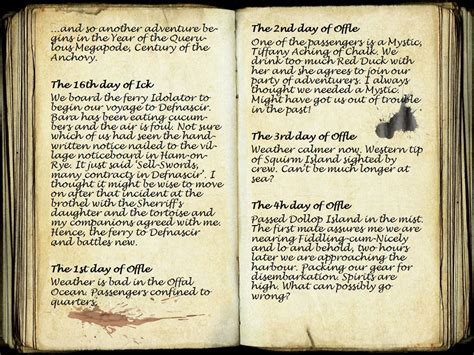 ...and so another adventure be-
gins in the Year of the Queru-
lous Megapode, Century of the
Anchovy.
The 16th day of Ick
We board the ferry Idolator to
begin our voyage to Defnascir.
Bara has been eating cucum-
bers and the air is foul. Not sure
which of us had seen the hand-
written notice nailed to the vil-
lage noticeboard in Ham-on-
Rye. It just said 'Sell-Swords,
many contracts in Defnascir'. I
thought it might be wise to move
on after that incident at the
brothel with the Sherriff's
daughter and the tortoise and
my companions agreed with me.
Hence, the ferry to Defnascir
and battles new.
The 1st day of Offle
Weather is bad in the Offal
Ocean. Passengers confined to
quarters.
The 2nd day of Offle
One of the passengers is a Mystic,
Tiffany Aching of Chalk. We
drink too much Red Duck with
her and she agrees to join our
party of adventurers. I always
thought we needed a Mystic.
Might have got us out of trouble
in the past!
The 3rd day of Offle
Weather calmer now. Western tip
of Squirm Island sighted by
crew. Can't be much longer at
sea?
The 4th day of Offle
Passed Dollop Island in the mist.
The first mate assures me we are
nearing Fiddling-cum-Nicely
and lo and behold, two hours
later we are approaching the
harbour. Packing our gear for
disembarkation. Spirits are
high. What can possibly go
wrong?